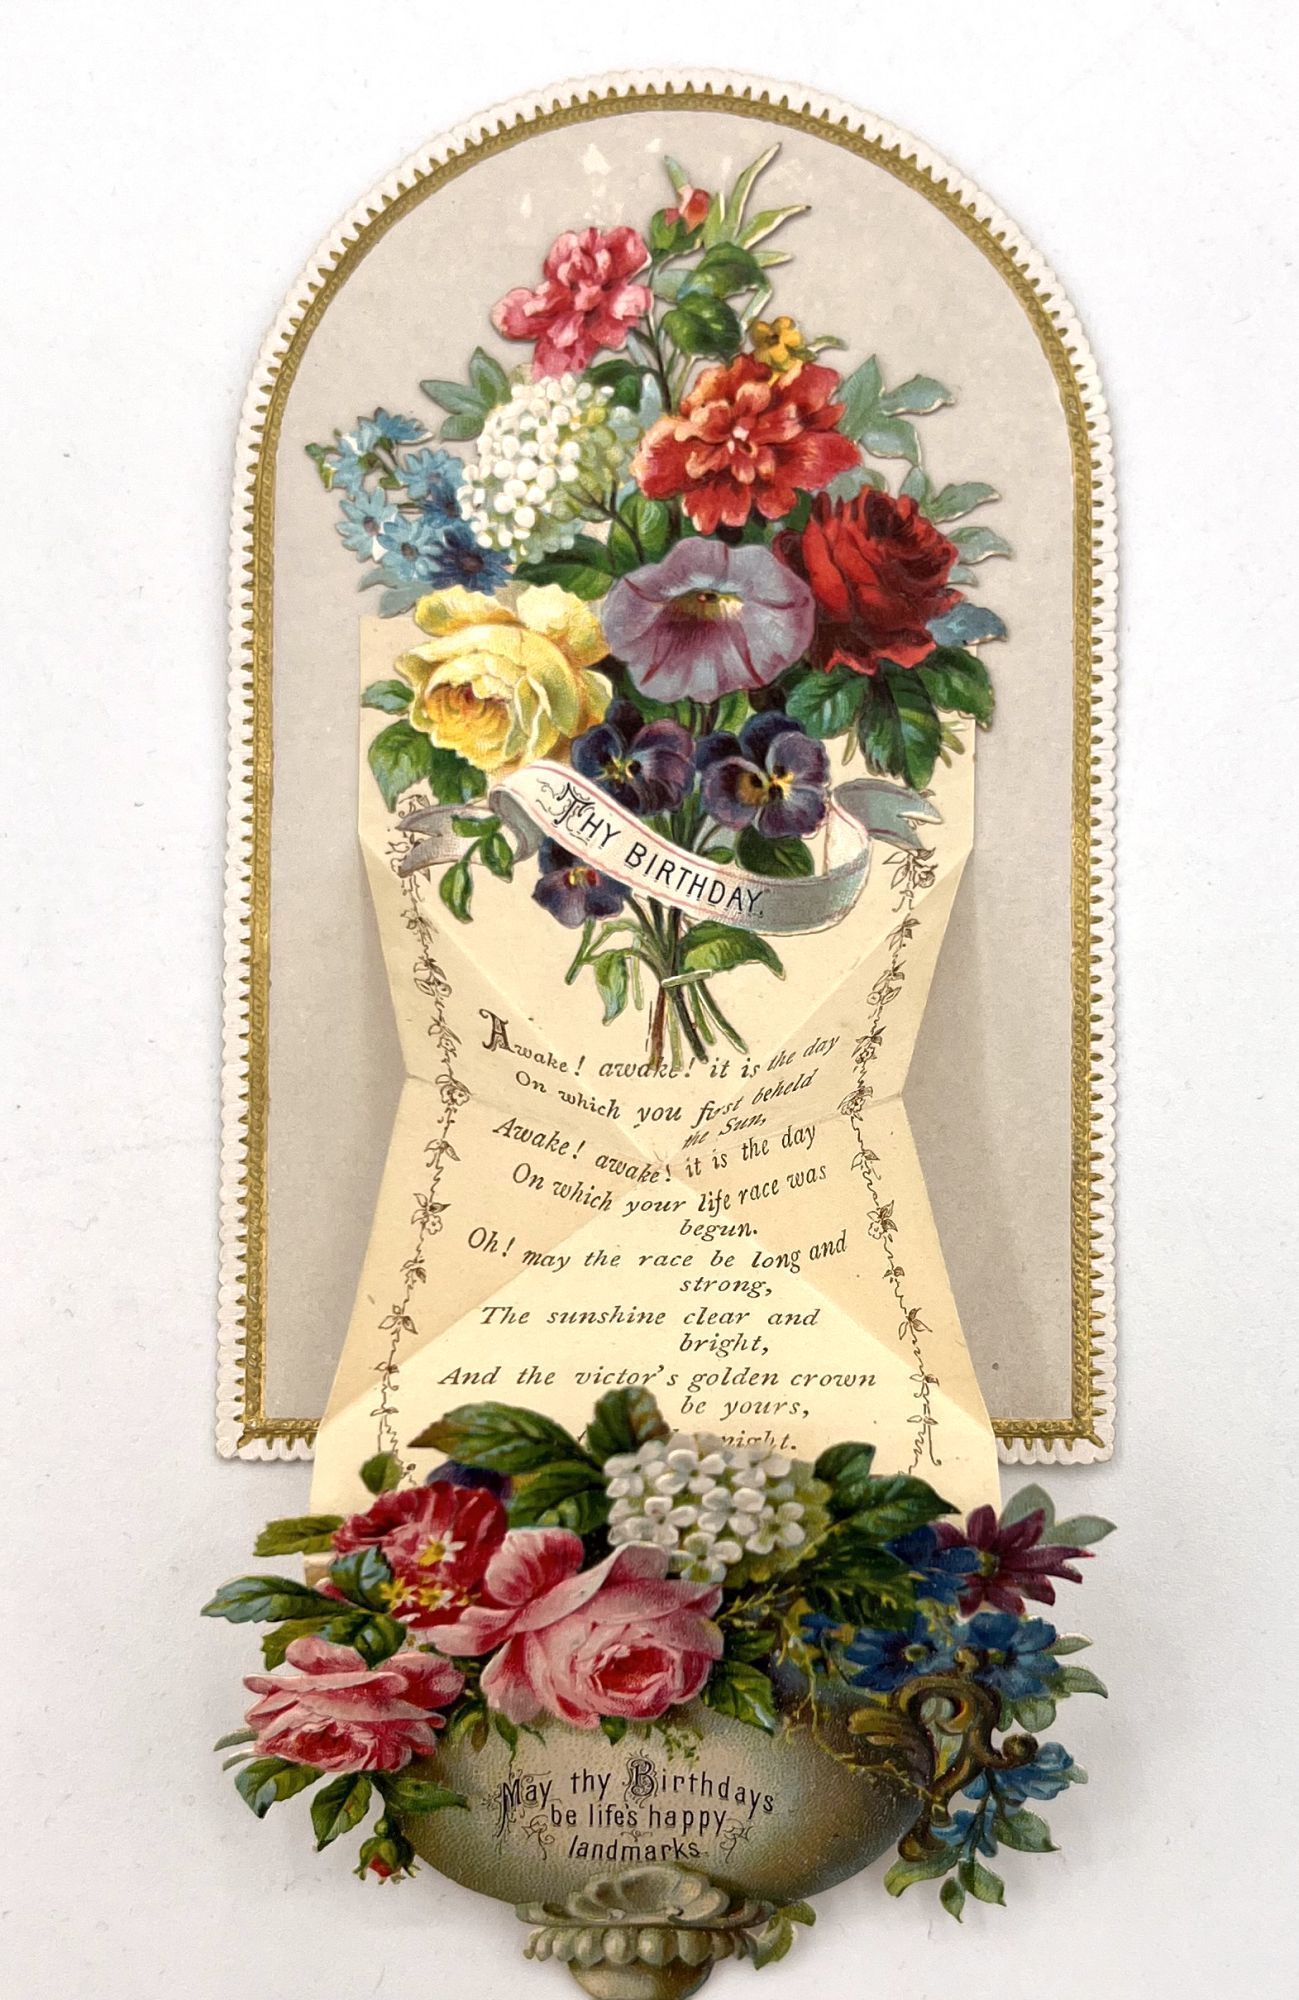 THY BIRTHDAY.
Awake! awake! it is the day
On which you first beheld
the Sun,
Awake! awake! it is the day
On which your life race was
begun.
Oh! may the race be long and
strong,
The sunshine clear and
bright,
And the victor's golden crown
be yours,
night.
May thy Birthdays
be life's happy
landmarks.